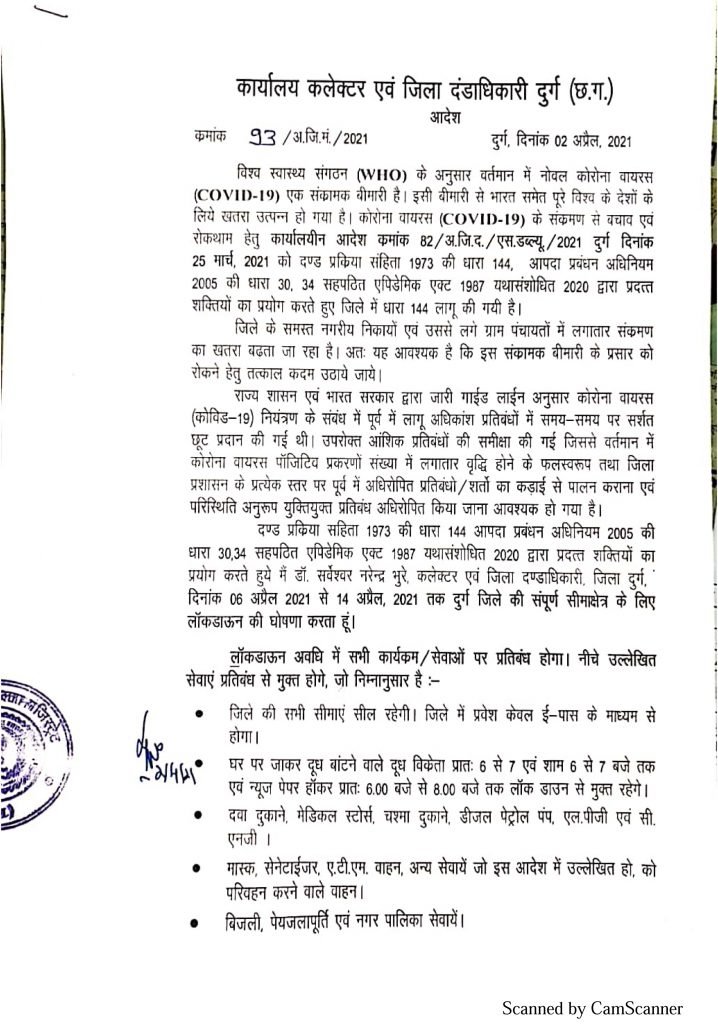 कार्यालय कलेक्टर एवं जिला दंडाधिकारी दुर्ग (छ.ग.)
आदेश
क्रमांक 93 /अ.जि.मं./2021 दुर्ग, दिनांक 02 अप्रैल, 2021
विश्व स्वास्थ्य संगठन (WHO) के अनुसार वर्तमान में नोवल कोरोना वायरस
(COVID-19) एक संक्रामक बीमारी है। इसी बीमारी से भारत समेत पूरे विश्व के देशों के
लिये खतरा उत्पन्न हो गया है। कोरोना वायरस (COVID-19) के संक्रमण से बचाव एवं
रोकथाम हेतु कार्यालयीन आदेश क्रमांक 82/अ.जि.द./एस.डब्ल्यू./2021 दुर्ग दिनांक
25 मार्च, 2021 को दण्ड प्रक्रिया संहिता 1973 की धारा 144, आपदा प्रबंधन अधिनियम
2005 की धारा 30, 34 सहपठित एपिडेमिक एक्ट 1987 यथासंशोधित 2020 द्वारा प्रदत्त
शक्तियों का प्रयोग करते हुए जिले में धारा 144 लागू की गयी है।
जिले के समस्त नगरीय निकायों एवं उससे लगे ग्राम पंचायतों में लगातार संक्रमण
का खतरा बढता जा रहा है। अतः यह आवश्यक है कि इस संक्रामक बीमारी के प्रसार को
रोकने हेतु तत्काल कदम उठाये जाये।
राज्य शासन एवं भारत सरकार द्वारा जारी गाईड लाईन अनुसार कोरोना वायरस
(कोविड–19) नियंत्रण के संबंध में पूर्व में लागू अधिकांश प्रतिबंधों में समय–समय पर सर्शत
छूट प्रदान की गई थी। उपरोक्त आंशिक प्रतिबंधों की समीक्षा की गई जिससे वर्तमान में
कोरोना वायरस पॉजिटिव प्रकरणों संख्या में लगातार वृद्धि होने के फलस्वरूप तथा जिला
प्रशासन के प्रत्येक स्तर पर पूर्व में अधिरोपित प्रतिबंधो/शर्तो का कड़ाई से पालन कराना एवं
परिस्थिति अनुरूप युक्तियुक्त प्रतिबंध अधिरोपित किया जाना आवश्यक हो गया है।
दण्ड प्रकिया सहिता 1973 की धारा 144 आपदा प्रबंधन अधिनियम 2005 की
धारा 30,34 सहपठित एपिडेमिक एक्ट 1987 यथासंशोधित 2020 द्वारा प्रदत्त शक्तियों का
प्रयोग करते हुये मैं डॉ. सर्वेश्वर नरेन्द्र भुरे, कलेक्टर एवं जिला दण्डाधिकारी, जिला दुर्ग,
दिनांक 06 अप्रैल 2021 से 14 अप्रैल, 2021 तक दुर्ग जिले की संपूर्ण सीमाक्षेत्र के लिए
लॉकडाऊन की घोषणा करता हूं।
लॉकडाऊन अवधि में सभी कार्यकम/सेवाओं पर प्रतिबंध होगा। नीचे उल्लेखित
सेवाएं प्रतिबंध से मुक्त होगे, जो निम्नानुसार है :–
• जिले की सभी सीमाएं सील रहेगी। जिले में प्रवेश केवल ई–पास के माध्यम से
होगा।
• घर पर जाकर दूध बांटने वाले दूध विकेता प्रातः 6 से 7 एवं शाम 6 से 7 बजे तक
एवं न्यूज पेपर हॉकर प्रातः 6.00 बजे से 8.00 बजे तक लॉक डाउन से मुक्त रहेगे।
• दवा दुकाने, मेडिकल स्टोर्स, चश्मा दुकाने, डीजल पेट्रोल पंप, एल.पी.जी एवं सी.
एनजी ।
• मास्क, सेनेटाईजर, ए.टी.एम. वाहन, अन्य सेवायें जो इस आदेश में उल्लेखित हो, को
परिवहन करने वाले वाहन।
• बिजली, पेयजलापूर्ति एवं नगर पालिका सेवायें।
Scanned by CamScanner